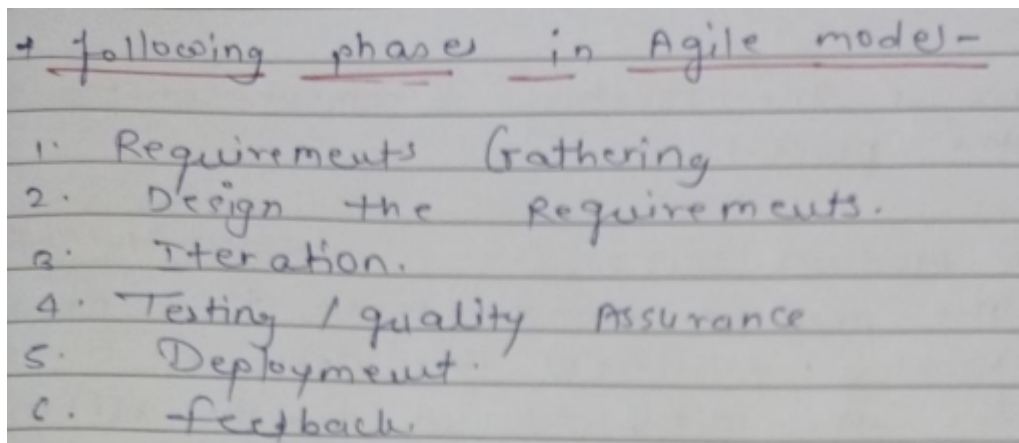 → following phases in Agile model-
1. Requirements Gathering
2. Design the Requirements.
3. Iteration.
4. Testing / quality Assurance
5. Deployment.
6. feedback.